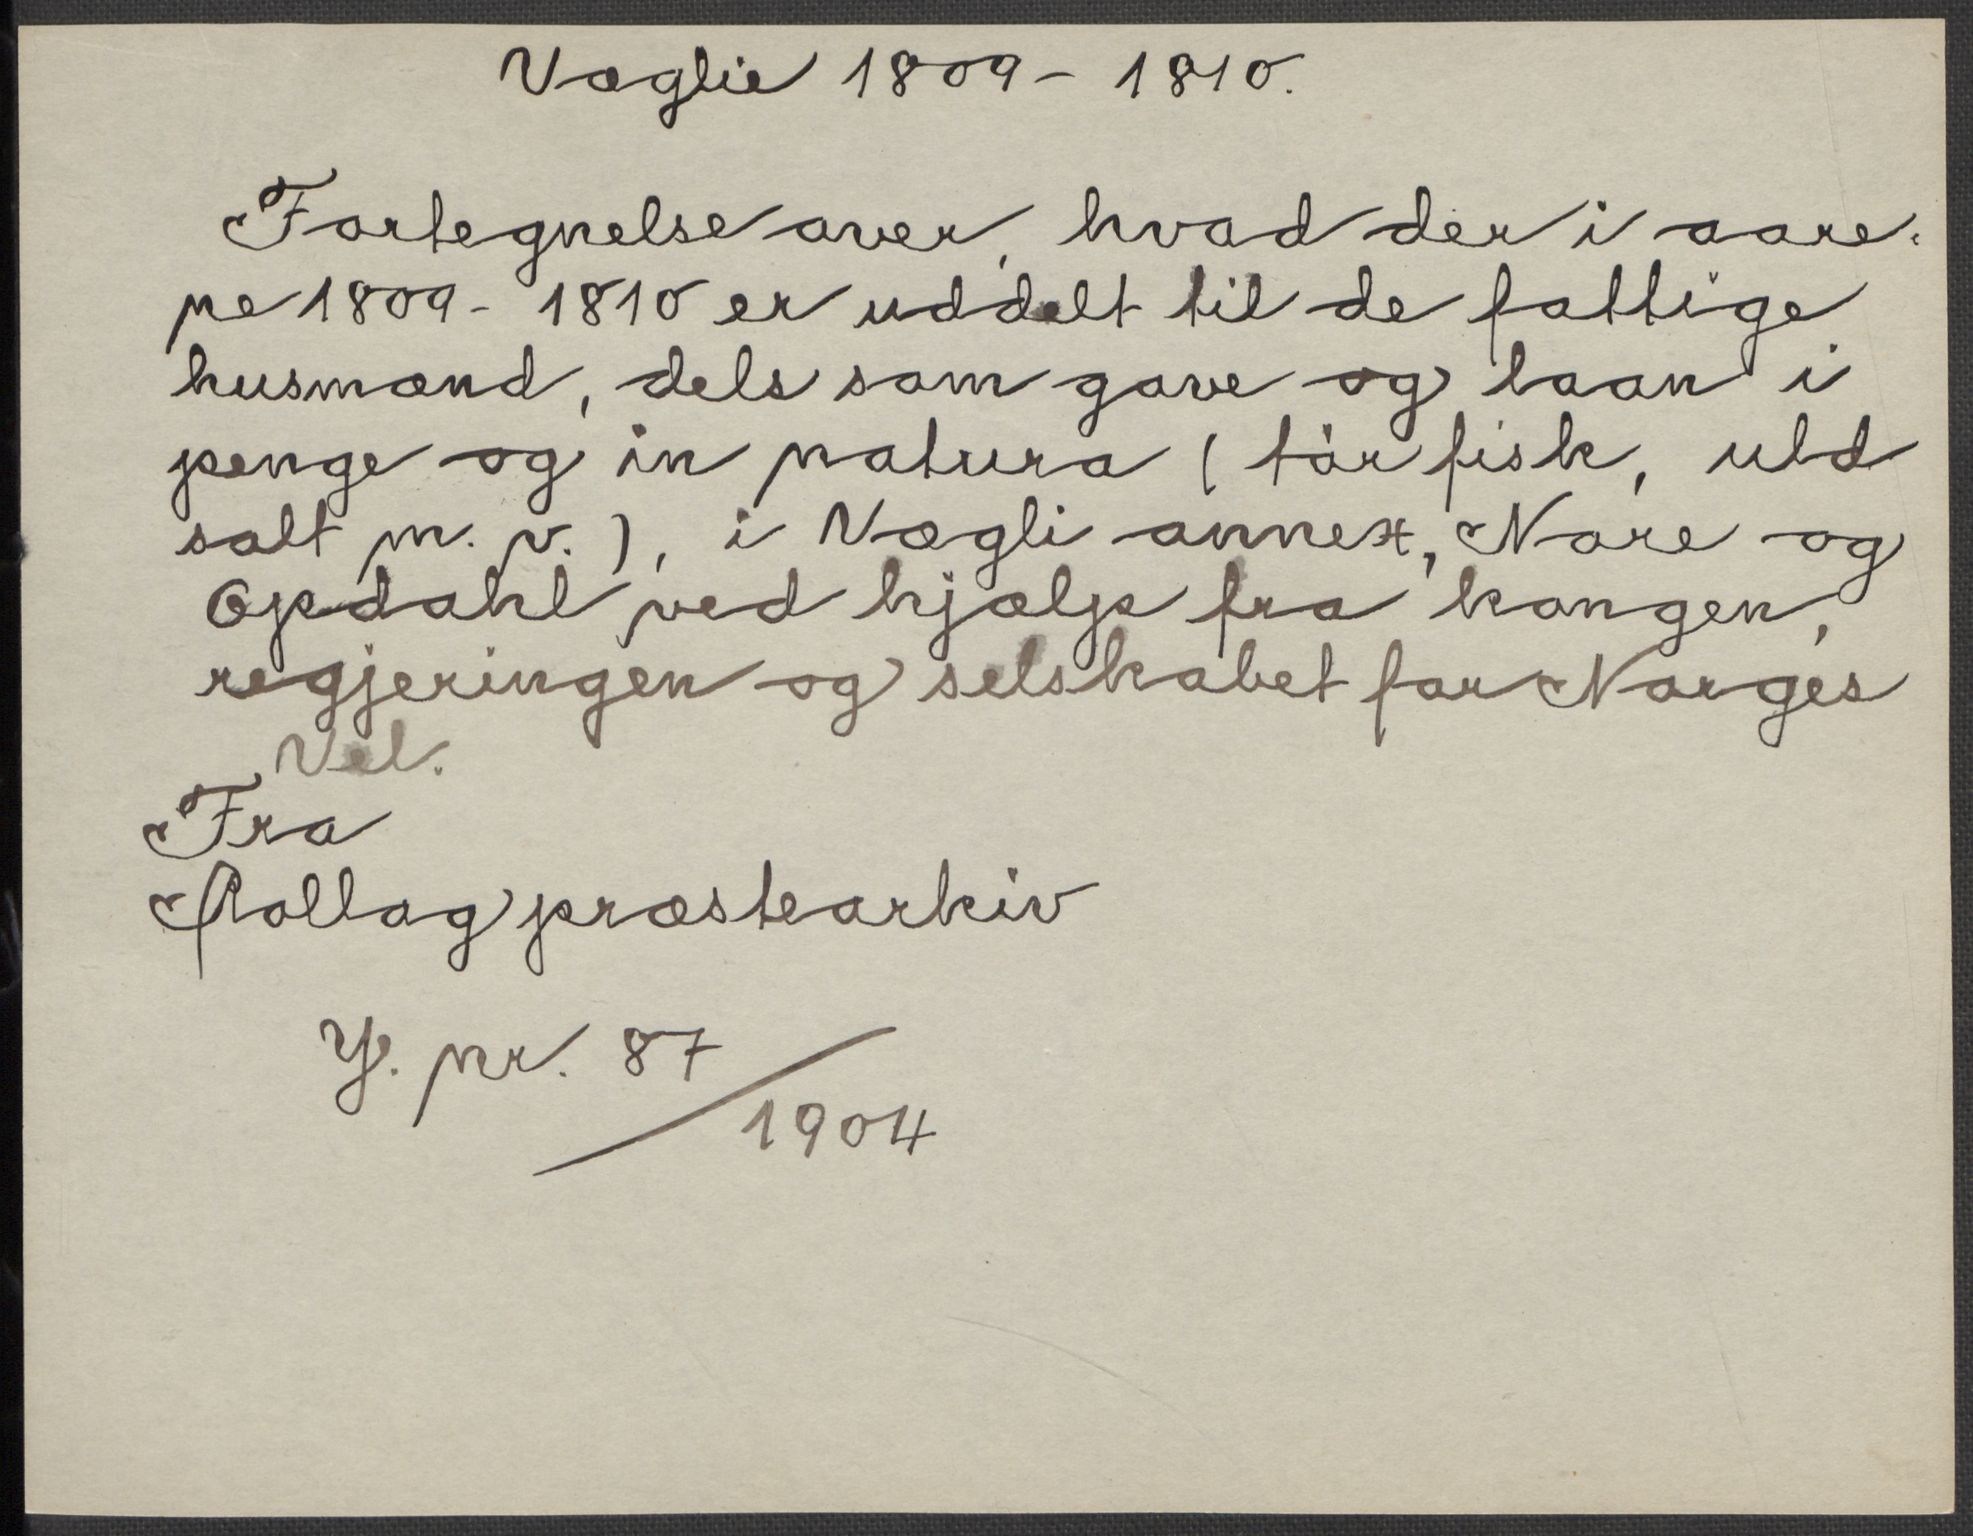 Væglie 1809-1810.
Fortegnelse over, hvad der i aare-
ne 1809-1810 er uddelt til de fattige
husmænd, dels som gave og laan i
penge og in natura (tör fisk, uld
salt m. v.), i Vægli annex, Nore og
Opdahl ved hjælp fra kongen,
regjeringen og selskabet for Norges
Vel.
Fra
Rollag præstearkiv
Y. nr. 87/1904